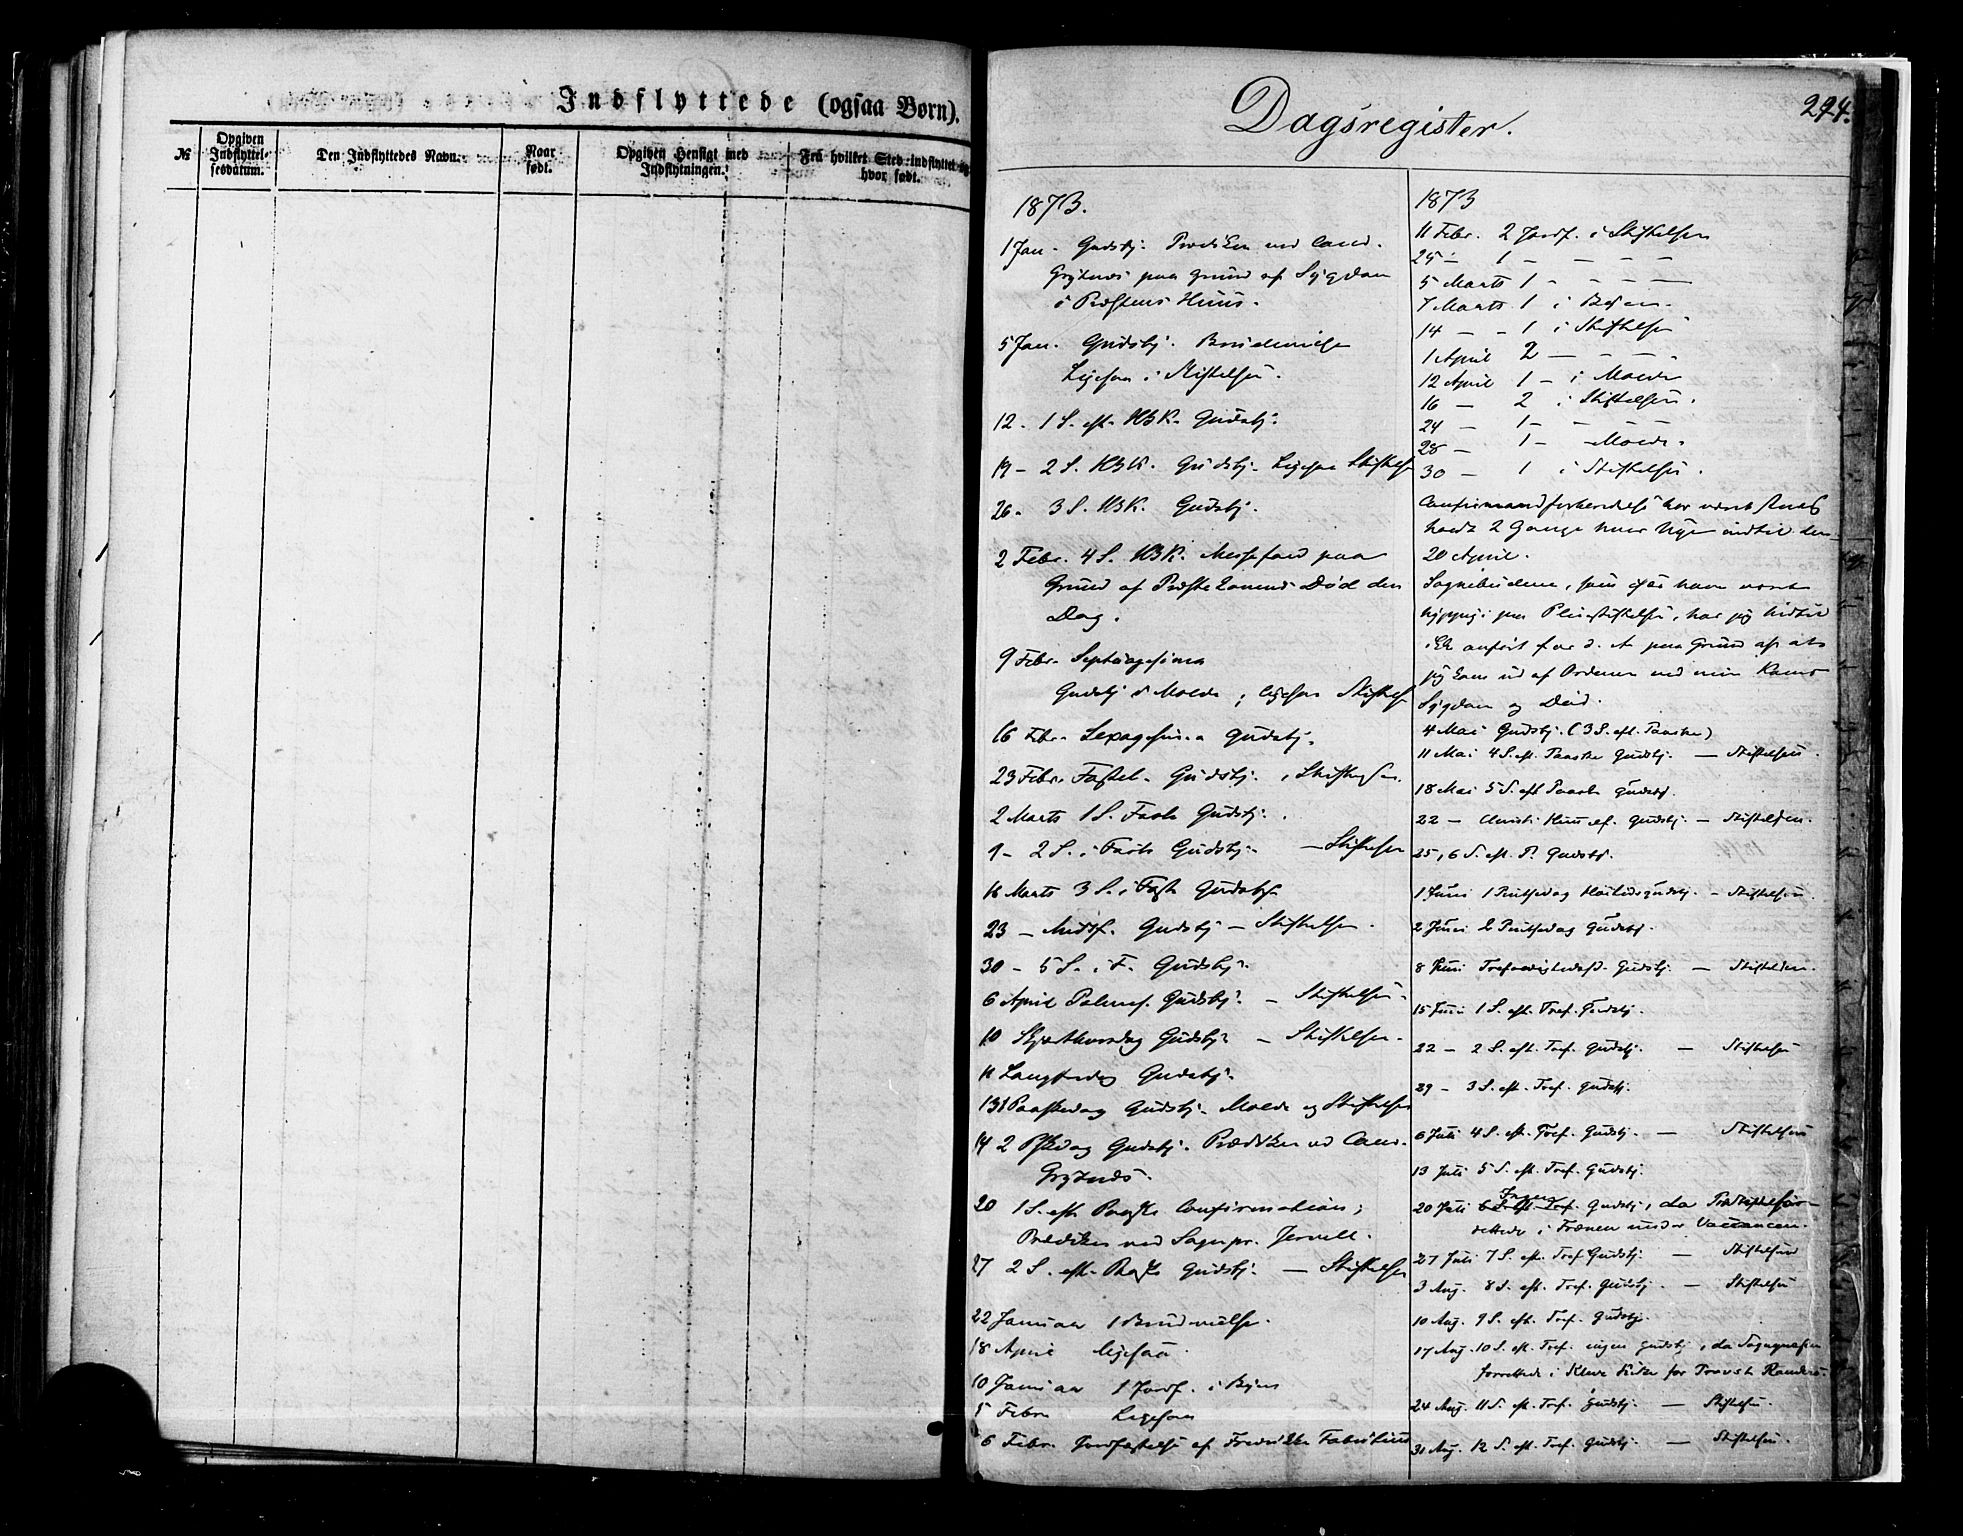 Indflyttede (ogsaa Børn).
№
Opgiven Indflyttelsesdatum.
Den Indflyttedes Navn.
Naar født.
Opgiven Hensigt med Indflytningen.
Fra hvilket Sted indflyttet og hvor født.
Dagsregister.
224.
1873.
1 Jan. Gudstj. Prædiken ved Cand.
Grytnæs paa Grund af Sygdom
i Præstens Huus.
5 Jan. Gudstj. Brudevielse
Ligesaa i Stiftelsen.
12. 1 S. eft. H3K. Gudstj.
19 - 2 S. H3K. Gudstj. Ligesaa Stiftelsen
26. 3 S. H3K. Gudstj.
2 Febr. 4 S. H3K. Messefald paa
Grund af Præstekonens Død den
Dag.
9 Febr. Septuagesima
Gudstj i Molde; ligesaa Stiftelsen
16 Febr. Sexagesima Gudstj.
23 Febr. Fastel. Gudstj. i Stiftelsen.
2 Marts 1 S. Faste Gudstj.
9 - 2 S. i Faste Gudstj. — Stiftelsen
16 Marts 3 S. i Faste Gudstj.
23 - Midtf. Gudstj - Stiftelsen.
30 - 5 S. i F. Gudstj.
6 April Palmes. Gudstj. - Stiftelsen.
10 Skjærthorsdag Gudstj. - Stiftelsen.
11 Langfredag Gudstj.
13 1 Paaskedag Gudstj. Molde og Stiftelsen
14 2 Pskedag Gudstj. Prædiken ved Cand.
Grytnæs.
20 1 S. eft. Paaske Confirmation;
Prædiken ved Sognepr. Jervell.
27 2 S. eft. Paaske Gudstj. — Stiftelsen
22 Januar 1 Brudevielse.
18 April ligesaa.
10 Januar 1 Jordf. i Byen
5 Febr. Ligesaa
6 Febr. Jordfæstelse af Fredrikke Fabritius
1873
11 Febr. 2 Jordf. i Stiftelsen
25 - 1 - - - -
5 Marts 1 - - - -
7 Marts 1 i Byen.
14 - - 1 i Stiftelsen
1 April 2 - - - -
12 April 1 - i Molde
16 - 2 i Stiftelsen.
24 - 1 - - - -
28 - 1 - Molde.
30 - 1 i Stiftelsen.
Confirmandforberedelse har været
holdt 2 Gange hver Uge indtil den
20 April.
Sognebudene, som have været
hyppige paa Pleiestiftelsen, har jeg hidtil
ikke anført for d. A. paa Grund af at
jeg kom ud af Ordenen ved min Kones
Sygdom og Død.
4 Mai Gudstj. (3 S. eft. Paaske)
11 Mai 4 S. eft. Paaske Gudstj. — Stiftelsen.
18 Mai 5 S. eft Paaske Gudstj.
22 - Christi Himmelf. Gudstj. - Stiftelsen.
25, 6 S. eft. P. Gudstj.
1 Juni 1 Pintsedag Høitidsgudstj. - Stiftelsen.
2 Juni 2 Pintsedag Gudstj.
8 Juni Trefoldighedsf. Gudstj. — Stiftelsen.
15 Juni 1 S. eft. Tref. Gudstj.
22 - 2 S. eft. Tref. Gudstj. — Stiftelsen
29 - 3 S. eft. Tref. Gudstj.
6 Juli 4 S. eft. Tref. Gudstj. — Stiftelsen
13 Juli 5 S. eft. Tref. Gudstj.
20 Juli 6 S. eft. Tref. Ingen Gudstj, da
rettede i Frænen under Vacancen.
27 Juli 7 S. eft. Tref Gudstj. — Stiftelsen
3 Aug. 8 S. eft. Tref. Gudstj. — Stiftelsen
10 Aug. 9 S. eft. Tref. Gudstj.
17 Aug. 10 S. eft. Tref. ingen Gudstj, da Sognepræsten
forrettede i Kleve Kirke for Provst
24 Aug. 11 S. eft. Tref. Gudstj. — Stiftelsen.
31 Aug. 12 S. eft. Tref. Gudstj. — Stiftelsen.